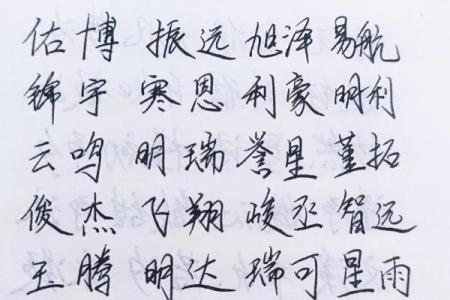 佑博 振远 旭泽 易航
锦宇 寒恩 利豪 明利
云鸣 明瑞 誉星 堇拓
俊杰 飞翔 峻丞 智远
玉腾 明达 瑞可 星雨